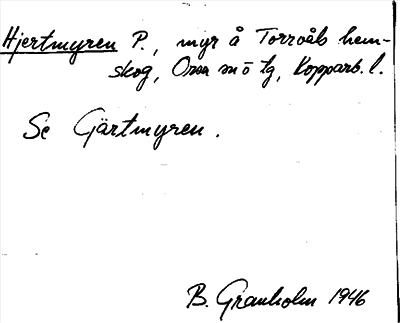 Hjertmyren P., myr å Torrvåls hem-
skog, Orsa m ö tg, Kopparb. l.
Se Gärtmyren.
B. Granholm 1946